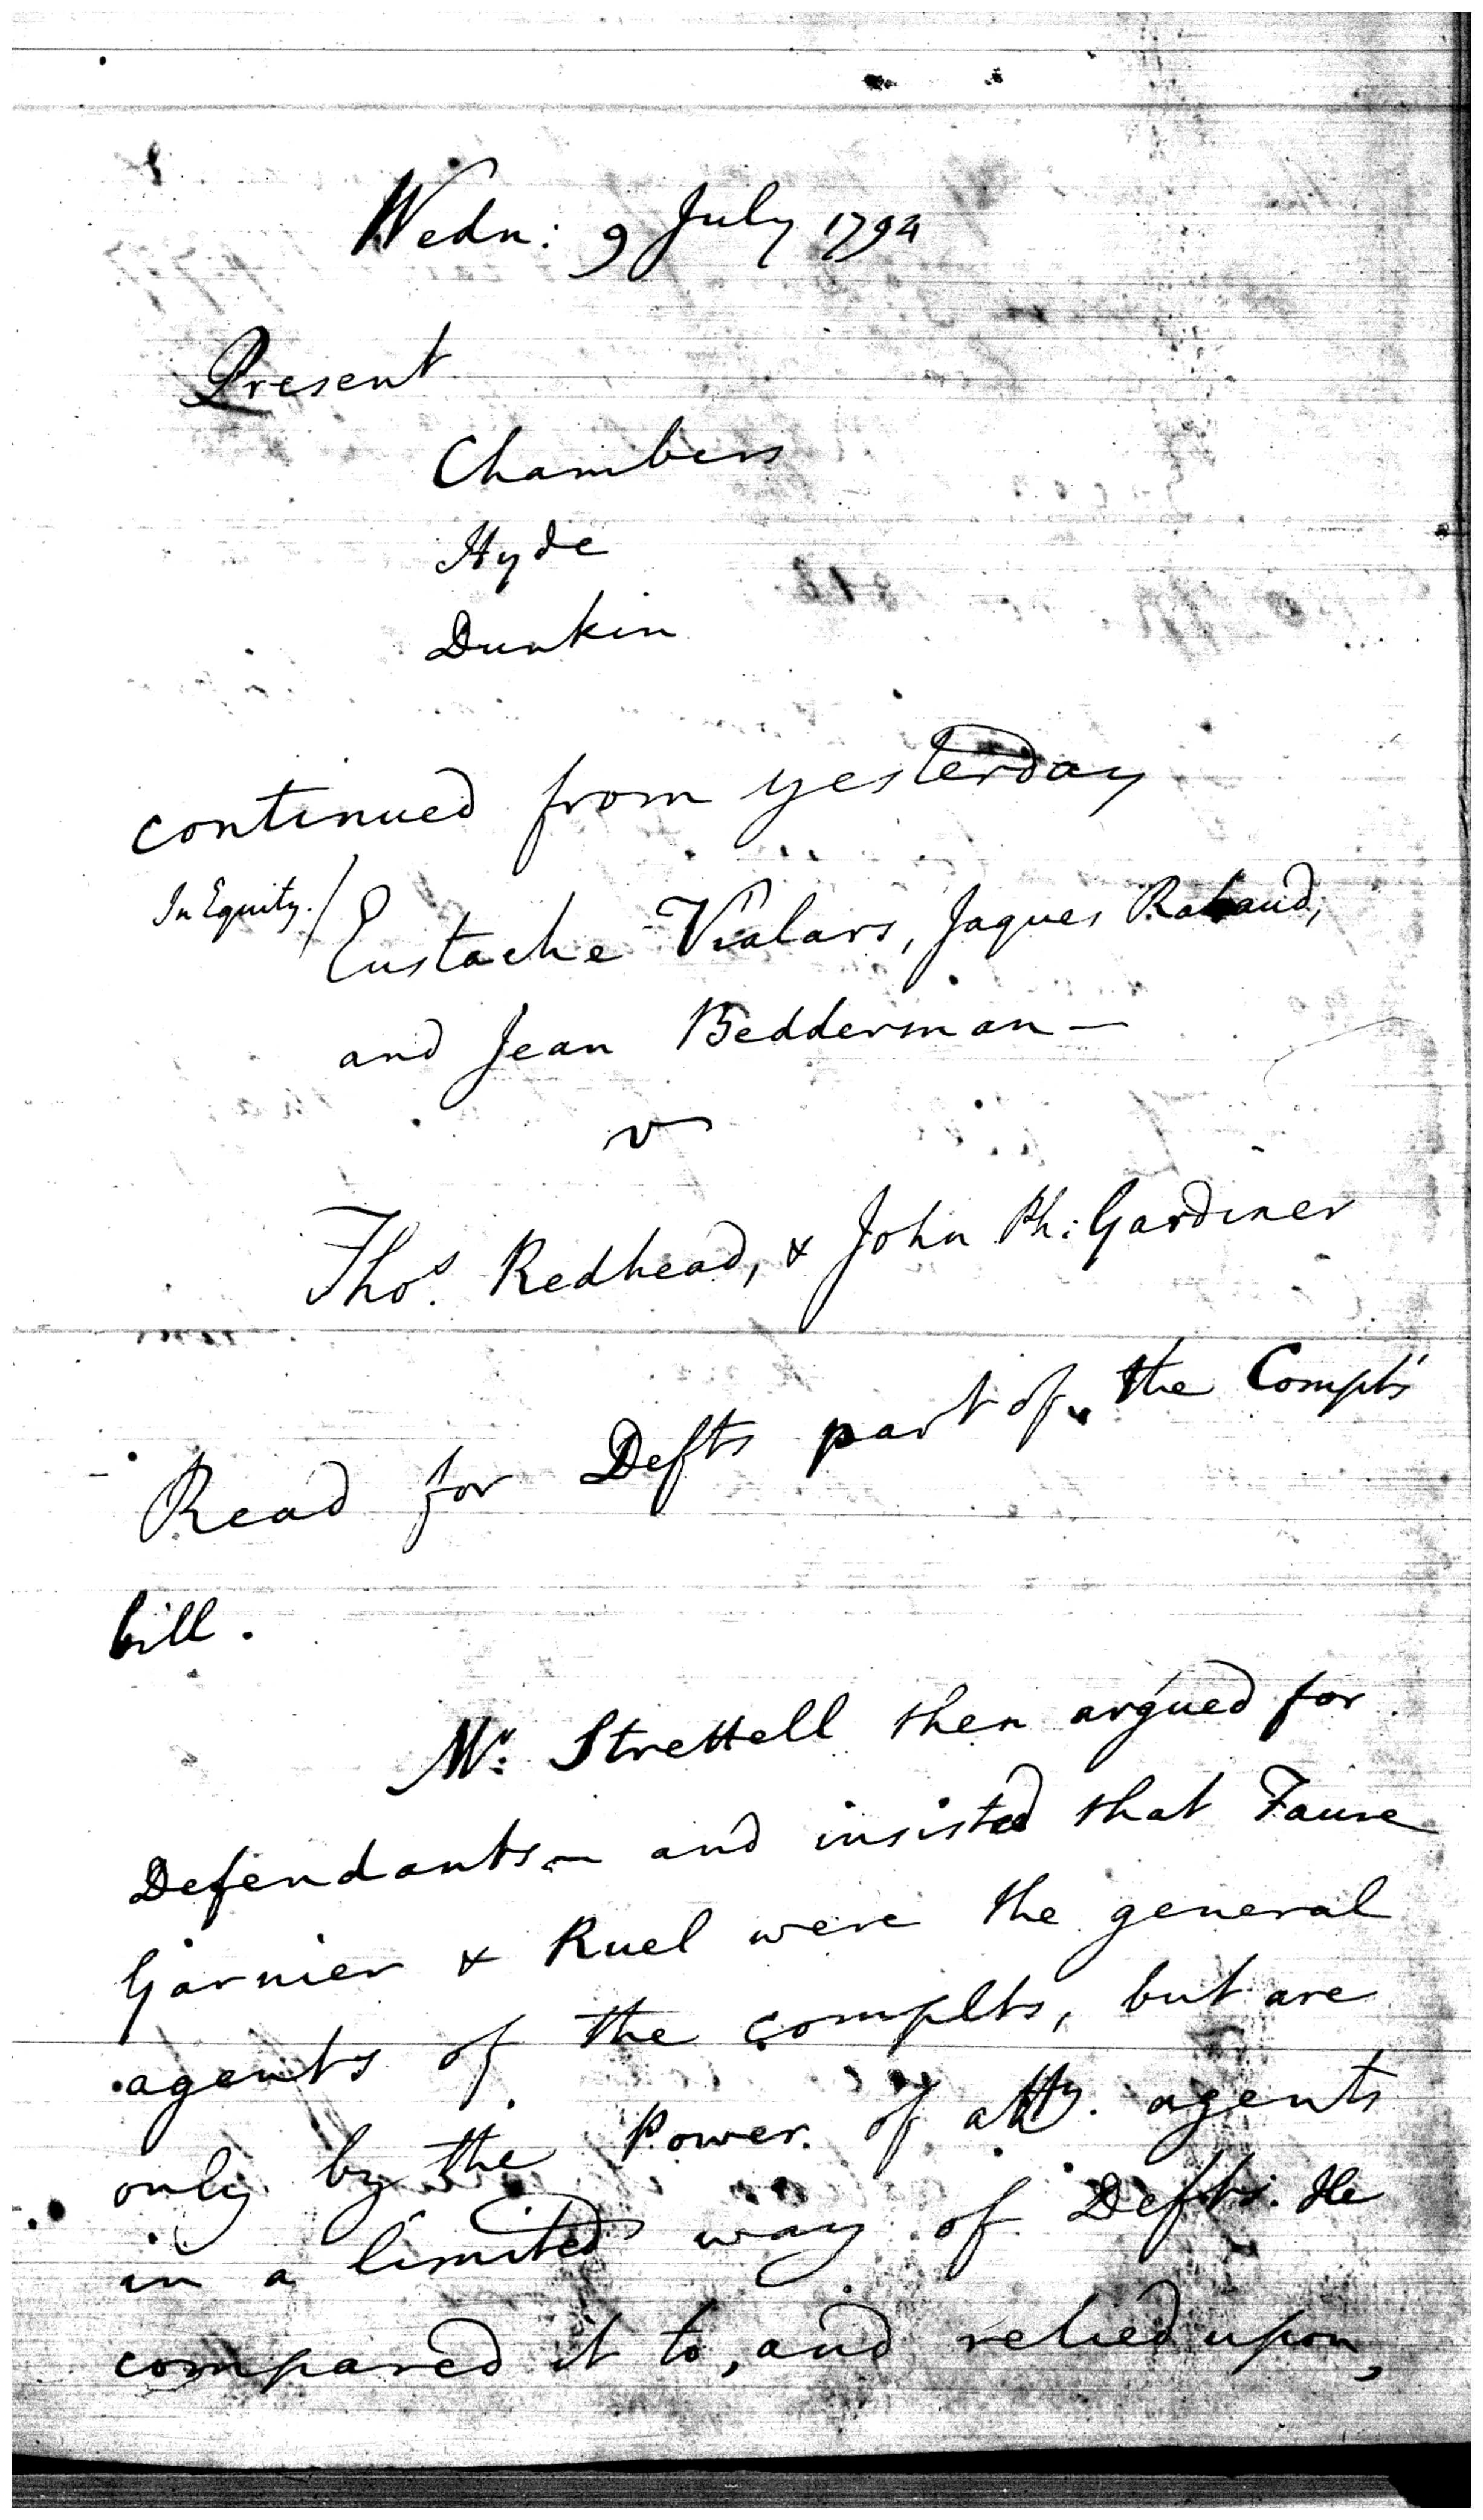 Wedn: 9 July 1794
Present
Chambers
Hyde
Dunkin
continued from yesterday
In Equity. / Eustache Vialars, Jaques Rabaud,
and Jean Bedderman —
v
Thos. Redhead, & John Ph: Gardiner
Read for Defts part of the Complts
bill.
Mr. Strettell then argued for
Defendants — and insisted that Faure
Garnier & Ruel were the general
agents of the complts, but are
only by the Power of atty. agents
in a limited way of Defts. He
compared it to, and relied upon,